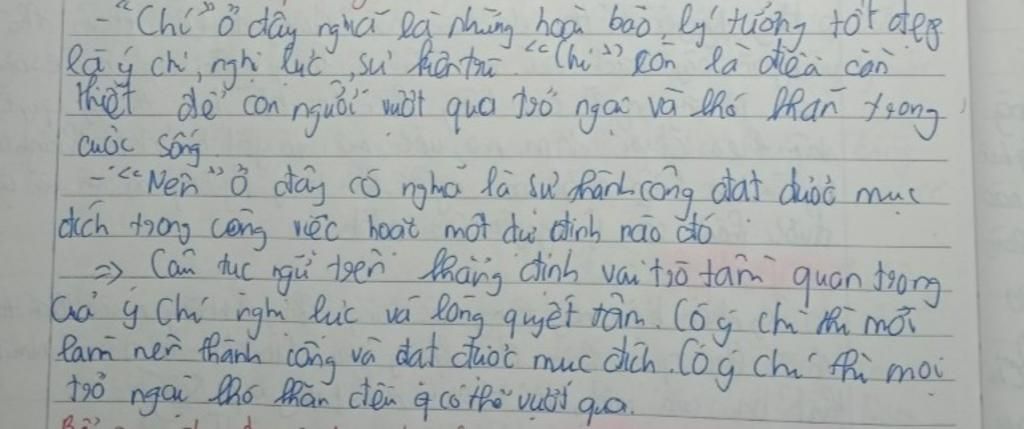 - "Chí" ở đây nghĩa là những hoài bão, lý tưởng tốt đẹp
là ý chí, nghị lực, sự kiên trì. "Chí" còn là điều cần
thiết để con người vượt qua trở ngại và khó khăn trong
cuộc sống.
- "Nên" ở đây có nghĩa là sự thành công đạt được mục
đích trong công việc hoặc một dự định nào đó
=> Câu tục ngữ trên khẳng định vai trò tầm quan trọng
của ý chí nghị lực và lòng quyết tâm. Có ý chí thì mới
làm nên thành công và đạt được mục đích. Có ý chí thì mọi
trở ngại khó khăn đều có thể vượt qua.